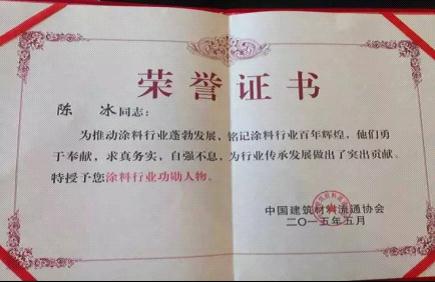 荣誉证书
陈 冰同志：
为推动涂料行业蓬勃发展，铭记涂料行业百年辉煌，他们勇
于奉献，求真务实，自强不息，为行业传承发展做出了突出贡献。
特授予您涂料行业功勋人物。
中国建筑材料流通协会
二〇一五年五月